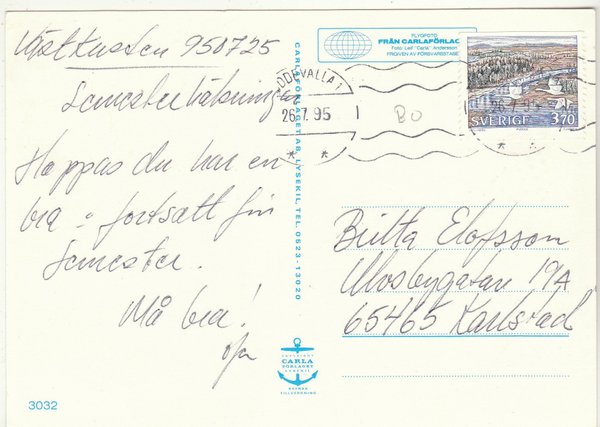 Västkusten 950725
Semesterhälsningar
Hoppas du har en
bra o fortsatt fin
semester.
Må bra!
CARLAFÖRLAGET AB, LYSEKIL, TEL. 0523-13020
FLYGFOTO
FRÅN CARLAFÖRLAG
Foto: Leif "Carla" Andersson
FRIGIVEN AV FÖRSVARSSTABEN
UDDEVALLA 1
26.7.95
BO
26.7.95
SVERIGE 3.70
Britta Elofsson
Ulvsbygatan 19A
65465 Karlstad
COPYRIGHT
CARLA
FÖRLAGET
LYSEKIL
SVENSK
TILLVERKNING
3032